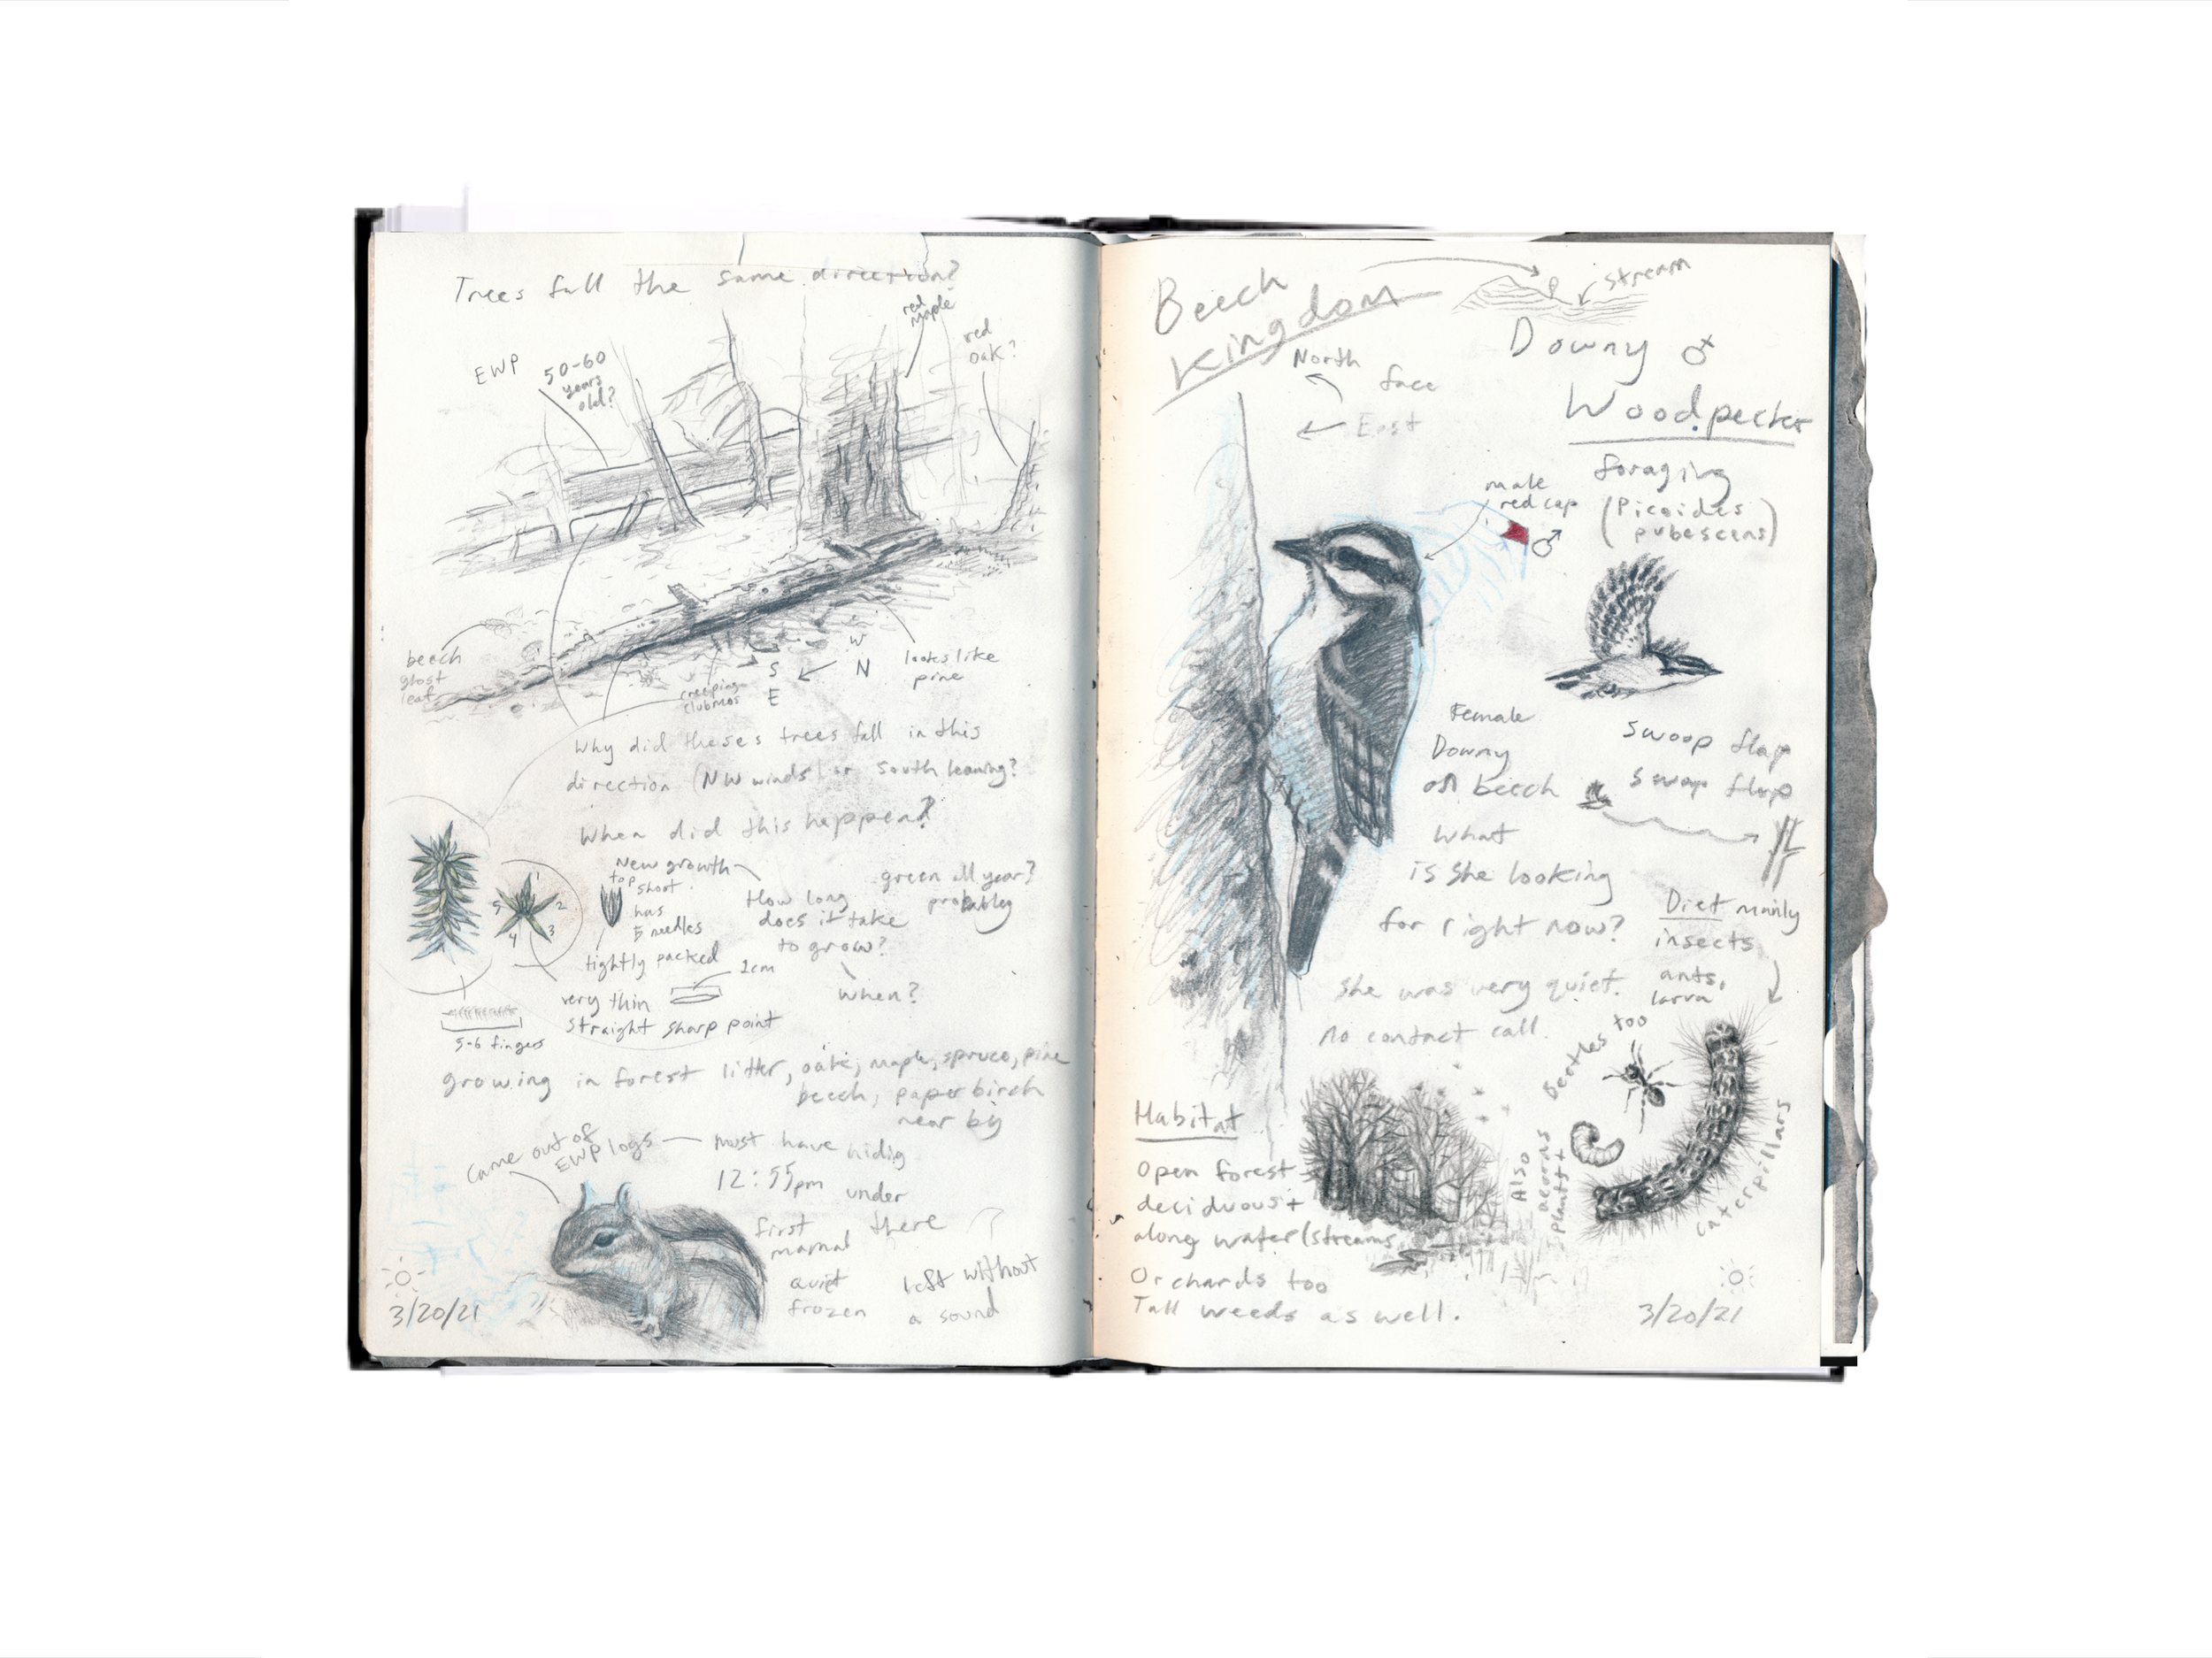 Trees fall the same direction?
red
maple
red
oak?
EWP
50-60
years
old?
beech
ghost
leaf
creeping
clubmos
W
S
N
E
looks like
pine
Why did theses trees fall in this
direction (NW winds) or South leaning?
When did this happen?
New growth
top shoot
has
5 needles
tightly packed
1
2
3
4
5
How long
does it take
to grow?
when?
green all year?
probabley
2cm
very thin
straight sharp point
5-6 fingers
growing in forest litter, oak, maple, spruce, pine
beech, paper birch
near by
came out of
EWP logs
must have hidig
12:55pm
under
there
first
mamal
quiet
frozen
left without
a sound
3/20/21
Beech
Kingdom
stream
North
face
East
Downy ♂
Woodpecker
foraging
(Picoides
pubescens)
male
red cap
♂
Female
Downy
on beech
Swoop flap
Swoop flap
What
is she looking
for right now?
She was very quiet.
no contact call.
Diet mainly
insects
ants,
larva
Beetles too
caterpillars
Also
acorns
plants+
Habitat
Open forest
deciduous+
along water/streams
Orchards too
Tall weeds as well.
3/20/21